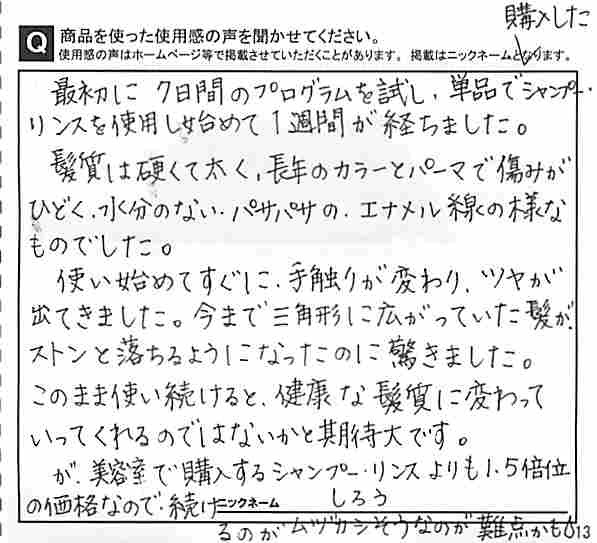 購入した
Q 商品を使った使用感の声を聞かせてください。
使用感の声はホームページ等で掲載させていただくことがあります。 掲載はニックネームとなります。
最初に 7日間のプログラムを試し、単品でシャンプー・
リンスを使用し始めて1週間が経ちました。
髪質は硬くて太く、長年のカラーとパーマで傷みが
ひどく、水分のない・パサパサの、エナメル線の様な
ものでした。
使い始めてすぐに、手触りが変わり、ツヤが
出てきました。今まで三角形に広がっていた髪が、
ストンと落ちるようになったのに驚きました。
このまま使い続けると、健康な髪質に変わって
いってくれるのではないかと期待大です。
が、美容室で購入するシャンプー・リンスよりも1.5倍位
の価格なので・続け
ニックネーム しろう
るのがムヅカシそうなのが難点かも
13